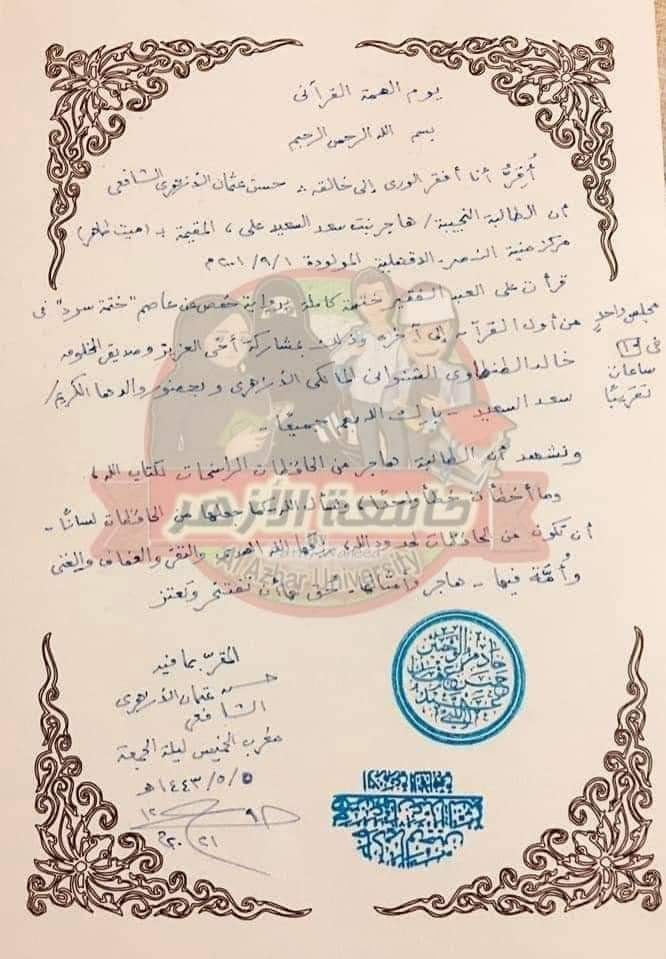 يوم الهمة القرآنى
بسم الله الرحمن الرحيم
أُقِرُّ أنا أفقر الورى إلى خالقه :- حسن عثمان الأزهرى الشافعى
أن الطالبة النجيبة / هاجر بنت سعد السعيد على ، المقيمة بـ (ميت
مركز منية النصر - الدقهلية المولودة ٢٠٠١/٩/١م
قرأت على العبد الفقير ختمة كاملة برواية حفص عن عاصم "ختمة سرد" فى
مجلس واحدٍ
فى ١٠ ساعات
تقريبًا
من أول القرآن إلى آخره وذلك بمشاركة أخى العزيز وصديقى الخلوق
خالد الطنطاوى الشنوانى المالكى الأزهرى وبحضور والدها الكريم /
سعد السعيد - بارك الله جميعًا -
ونشهد أن الطالبة هاجر من الحافظات الراسخات لكتاب الله،
وما أخطأت خطأً واحدًا، ونسأل الله كما جعلها من الحافظات لسانًا -
أن تكون من الحافظات لحدود الله، الله الهدى والتقى والعفاف والغنى
وأُمّة فيها - هاجر وأمثالها - يُحق لها أن تفتخر وتعتز
جامعة الأزهر
Al Azhar University
المقرّ بما فيه
حسن عثمان الأزهرى
الشافعى
مغرب الخميس ليلة الجمعة
١٤٤٣/٥/٥هـ
٩ ١٢
٢٠٢١م